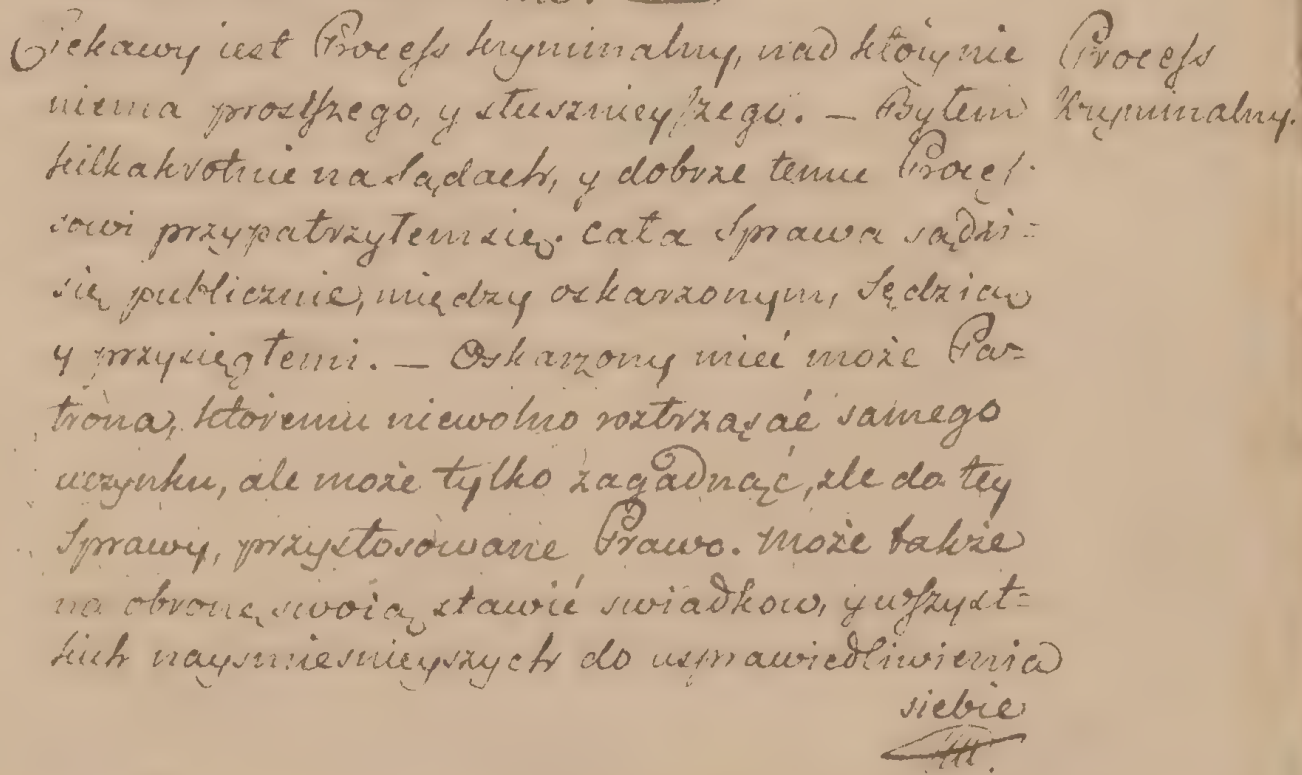 Ciekawy iest Process kryminalny, nad który nie
niema prostszego, y słusznieyszego. — Byłem
kilkakrotnie na Sądach, y dobrze temu Proces-
sowi przypatrzyłem się. cała Sprawa sądzi=
się publicznie, między oskarzonym, Sędzią
y przysięgłemi. — Oskarzony mieć może Pa=
trona, ktoremu niewolno roztrząsać samego
uczynku, ale może tylko zagadnąć, źle do tey
Sprawy, przystosowane Prawo. może także
na obronę swoią stawić swiadkow, y wszyst=
kich naysmiesnieyszych do usprawiedliwienia
siebie
Process
Kryminalny.